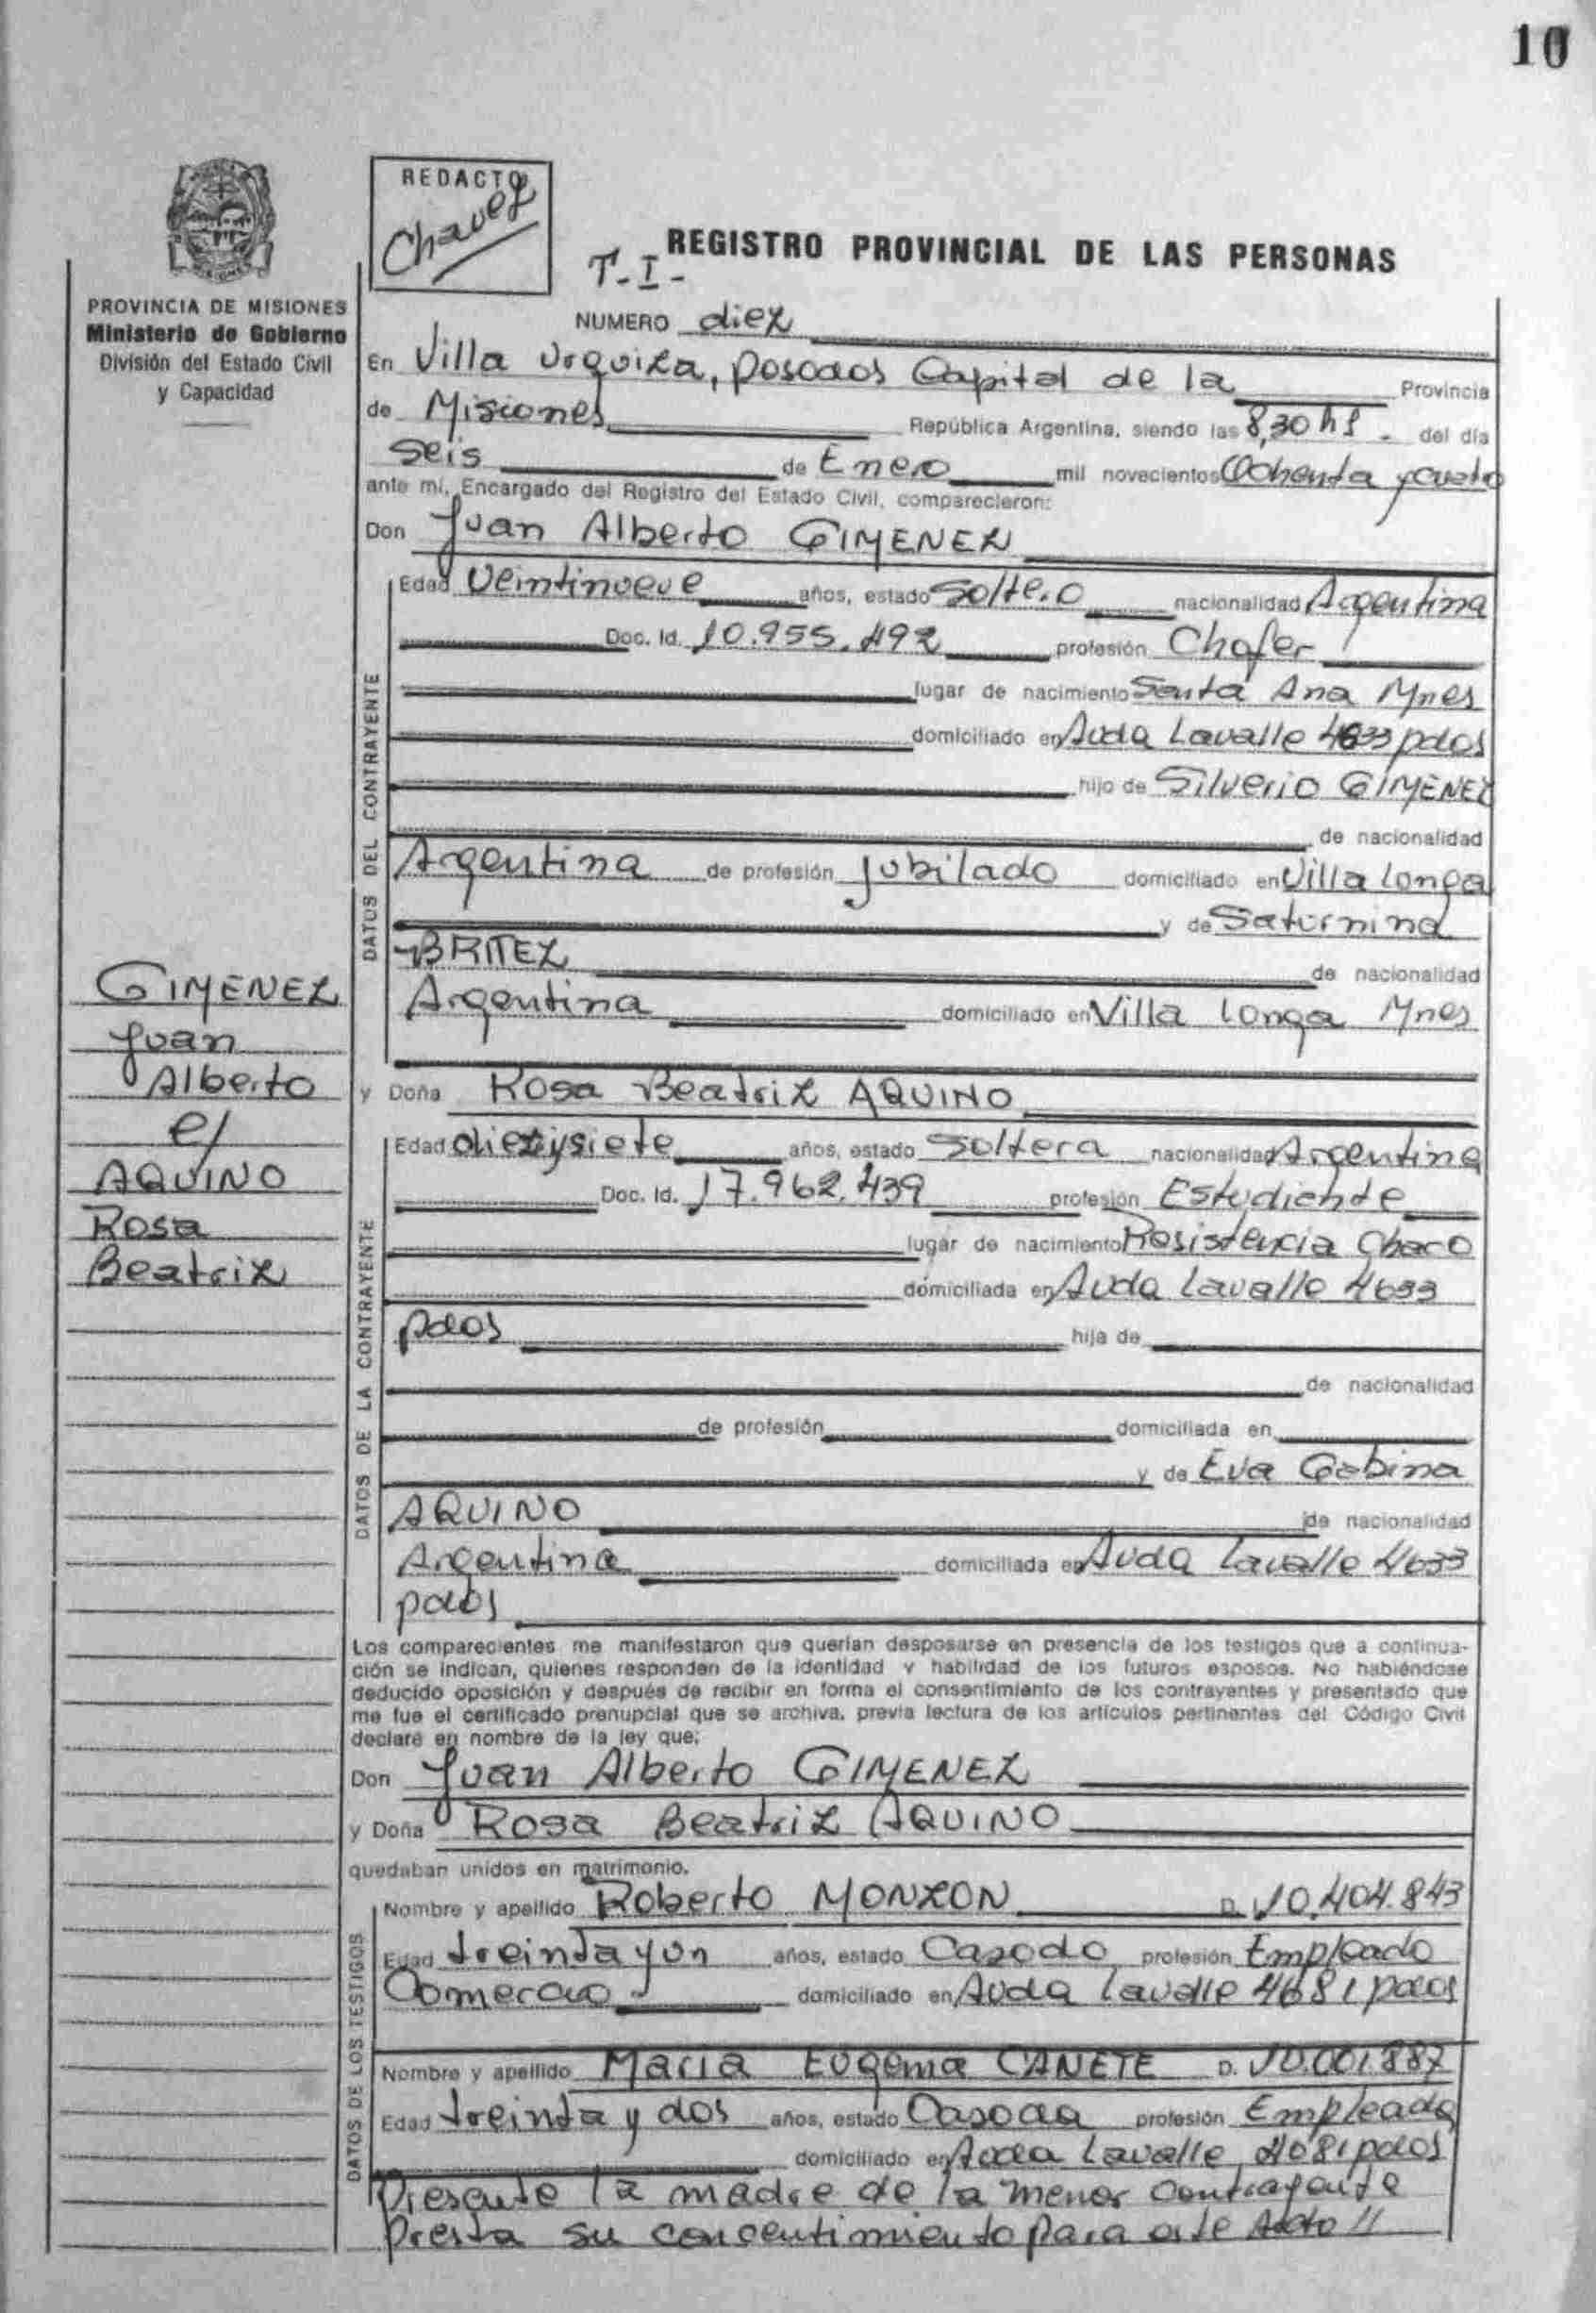 10
REDACTO
Chavez
REGISTRO PROVINCIAL DE LAS PERSONAS
T-I-
PROVINCIA DE MISIONES
Ministerio de Gobierno
División del Estado Civil
y Capacidad
NUMERO diez
En Villa Urquiza, Posadas Capital de la Provincia
de Misiones República Argentina, siendo las 8,30 hs. del día
Seis de Enero mil novecientos Ochenta y cuatro
ante mí, Encargado del Registro del Estado Civil, comparecieron:
Don Juan Alberto GIMENEZ
DATOS DEL CONTRAYENTE
Edad Veintinueve años, estado Soltero nacionalidad Argentina
Doc. Id. 10.955.492 profesión Chofer
lugar de nacimiento Santa Ana Mnes
domiciliado en Avda Lavalle 4633 pdas
hijo de Silverio GIMENEZ
de nacionalidad
Argentina de profesión jubilado domiciliado en Villa Longa
y de Saturnina
BRITEZ de nacionalidad
Argentina domiciliado en Villa Longa Mnes
GIMENEZ
Juan
Alberto
c/
AQUINO
Rosa
Beatriz
y Doña Rosa Beatriz AQUINO
DATOS DE LA CONTRAYENTE
Edad diezysiete años, estado Soltera nacionalidad Argentina
Doc. Id. 17.962.439 profesión Estudiante
lugar de nacimiento Resistencia Chaco
domiciliada en Avda Lavalle 4633
pdas hija de
de nacionalidad
de profesión domiciliada en
y de Eva Gabina
AQUINO de nacionalidad
Argentina domiciliada en Avda Lavalle 4633
pdas
Los comparecientes me manifestaron que querían desposarse en presencia de los testigos que a continua-
ción se indican, quienes responden de la identidad y habilidad de los futuros esposos. No habiéndose
deducido oposición y después de recibir en forma el consentimiento de los contrayentes y presentado que
me fue el certificado prenupcial que se archiva, previa lectura de los artículos pertinentes del Código Civil
declaré en nombre de la ley que:
Don Juan Alberto GIMENEZ
y Doña Rosa Beatriz AQUINO
quedaban unidos en matrimonio.
DATOS DE LOS TESTIGOS
Nombre y apellido Roberto MONZON D. 10.404.843
Edad treinta y un años, estado Casado profesión Empleado
Comercio domiciliado en Avda Lavalle 4681 pdas
Nombre y apellido Maria Eugenia CAÑETE D. 10.001.887
Edad treinta y dos años, estado Casada profesión Empleada
domiciliado en Avda Lavalle 4681 pdas
Presente la madre de la menor contrayente
Presta su concentimiento para este Acto //